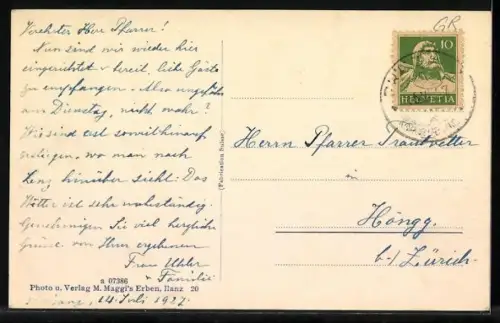 Verehrter Herr Pfarrer!
Nun sind wir wieder hier
eingerichtet & bereit, liebe Gäste
zu empfangen. Also ungefähr
am Dienstag, nicht wahr?
Wir sind erst soweit hinauf
gestiegen, wo man nach
Lenz hinüber sieht. Das
Wetter ist sehr
Genehmigen Sie viel herzliche
Grüsse von Ihrer ergebenen
Frau Uhler
& Familie
14. Juli 1927.
a 07386
Photo u. Verlag M. Maggi's Erben, Ilanz 20
(Fabrication Suisse)
GR
10
HELVETIA
Herrn Pfarrer Trautvetter
in
Höngg.
b./ Zürich.